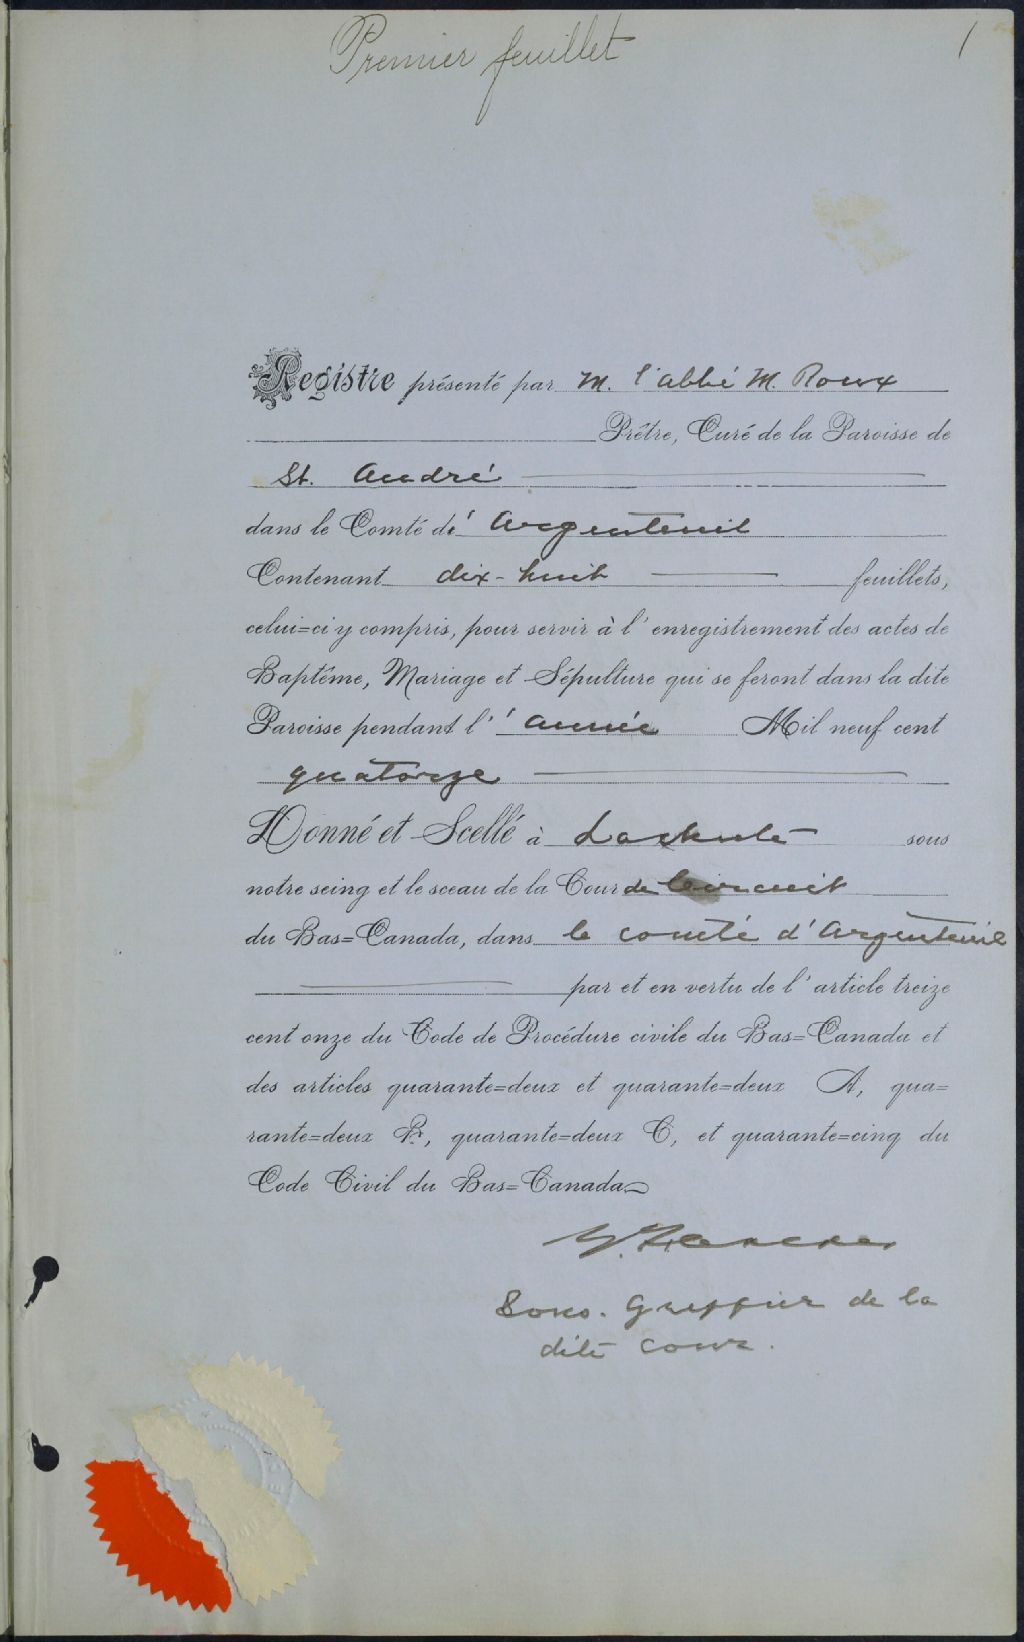 Premier feuillet
1
Registre présenté par M. l'abbé M. Roux
Prêtre, Curé de la Paroisse de
St. André
dans le Comté d' Argenteuil
Contenant dix-huit feuillets,
celui=ci y compris, pour servir à l'enregistrement des actes de
Baptême, Mariage et Sépulture qui se feront dans la dite
Paroisse pendant l' année Mil neuf cent
quatorze
Donné et Scellé à Lachute sous
notre seing et le sceau de la Cour de Circuit
du Bas=Canada, dans le comté d'Argenteuil
par et en vertu de l'article treize
cent onze du Code de Procédure civile du Bas=Canada et
des articles quarante=deux et quarante=deux A, qua=
rante=deux B, quarante=deux C, et quarante=cinq du
Code Civil du Bas=Canada
Sous. Greffier de la
dite Cour.